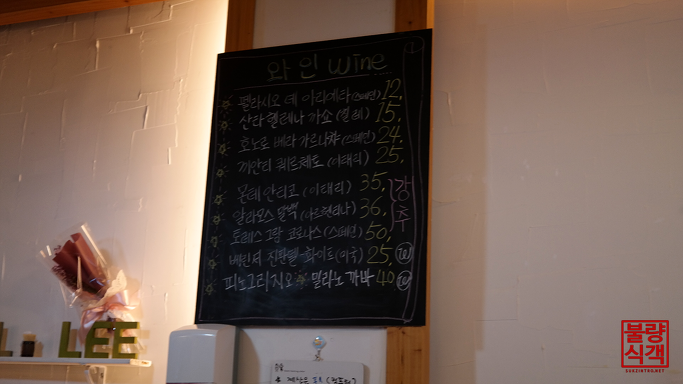 와인 wine
펠라시오 데 아리에타(스페인) 12,
산타 헬레나 까쇼(칠레) 15,
호노로 베라 가르나챠(스페인) 24,
끼안티 퀘르체토(이태리) 25,
몬테 안티코(이태리) 35,
알라모스 말벡(아르헨티나) 36,
토레스 그랑 코로나스(스페인) 50,
강추
베린저 진판델 화이트(미국) 25, W
피노그리지오 밀라노 까바 40 W
LEE
불량
식객